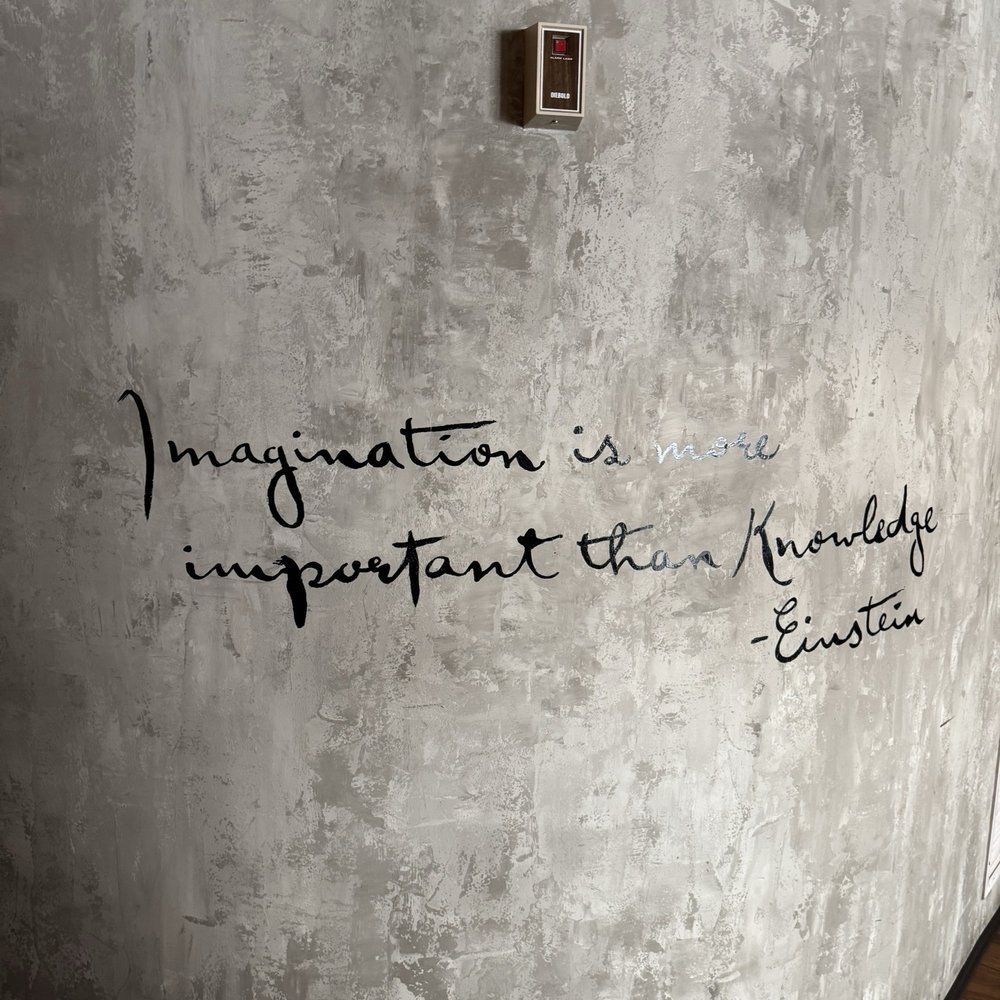 ALARM LAMP
DIEBOLD
Imagination is more
important than Knowledge
-Einstein